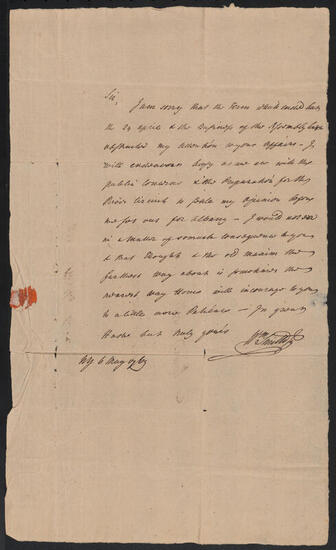 Sir,
I am sorry that the Term which ended but
the 29 April & the Business of the Assembly have
obstructed my Attention to your Affairs – I
will endeavour busy as we are with the
public Concerns & the Preparation for the
River Circuit to state my Opinion before
we set out for Albany – I would not err
in a Matter of so much Consequence to you
& that Thought & the old maxim the
farthest Way about is sometimes the
nearest Way Home will incourage to you
to a little more Patience – In great
Haste but truly yours
Wm Smith Jr
NY 6 May 1769